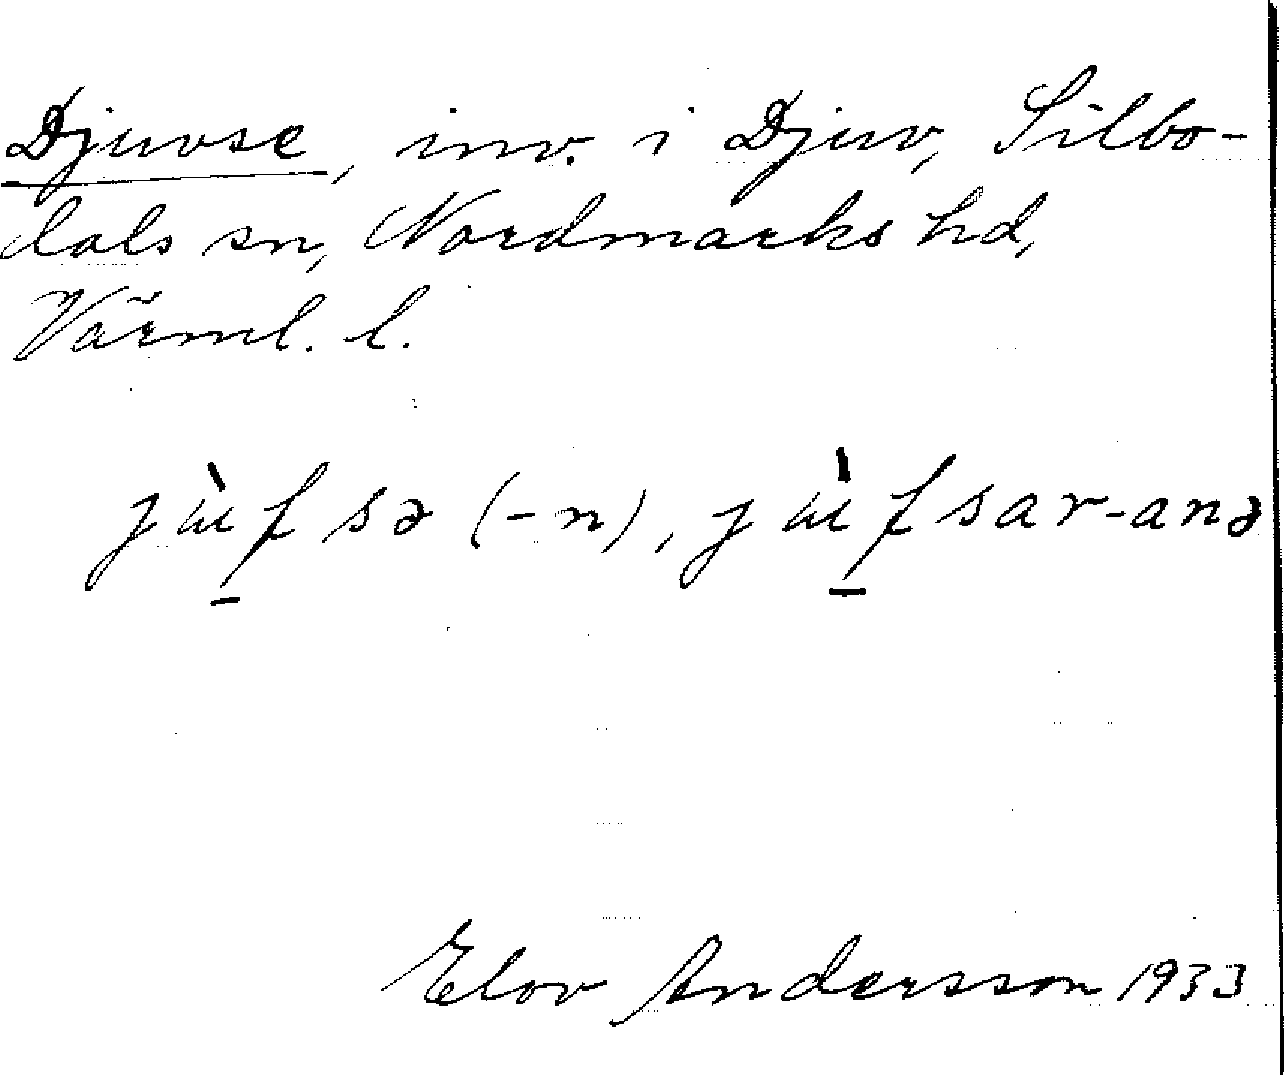 Djuvse, inv. i Djuv, Silbo-
dals sn, Nordmarks hd,
Värml. l.
jùfsə (-n), jùfsar-anə
Elov Andersson 1933